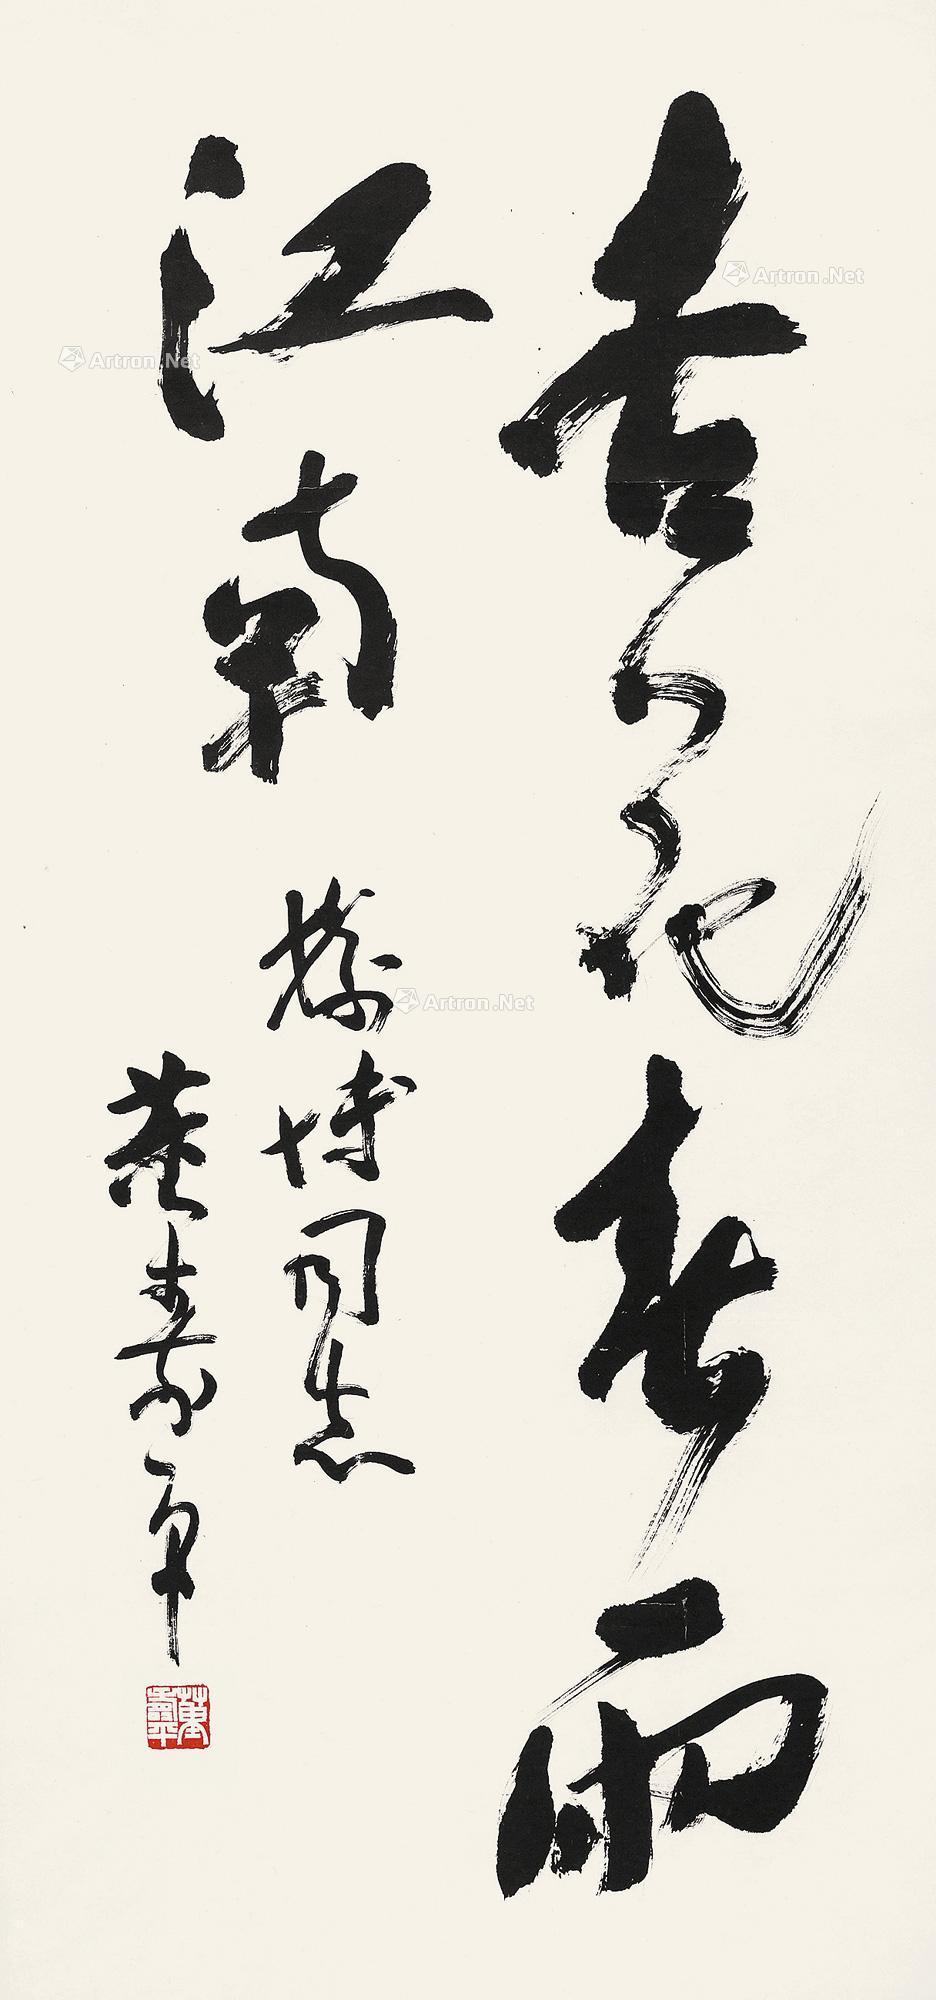 杏花春雨
江南
博同志
董寿平
董寿平
Artron.Net
Artron.Net
Artron.Net